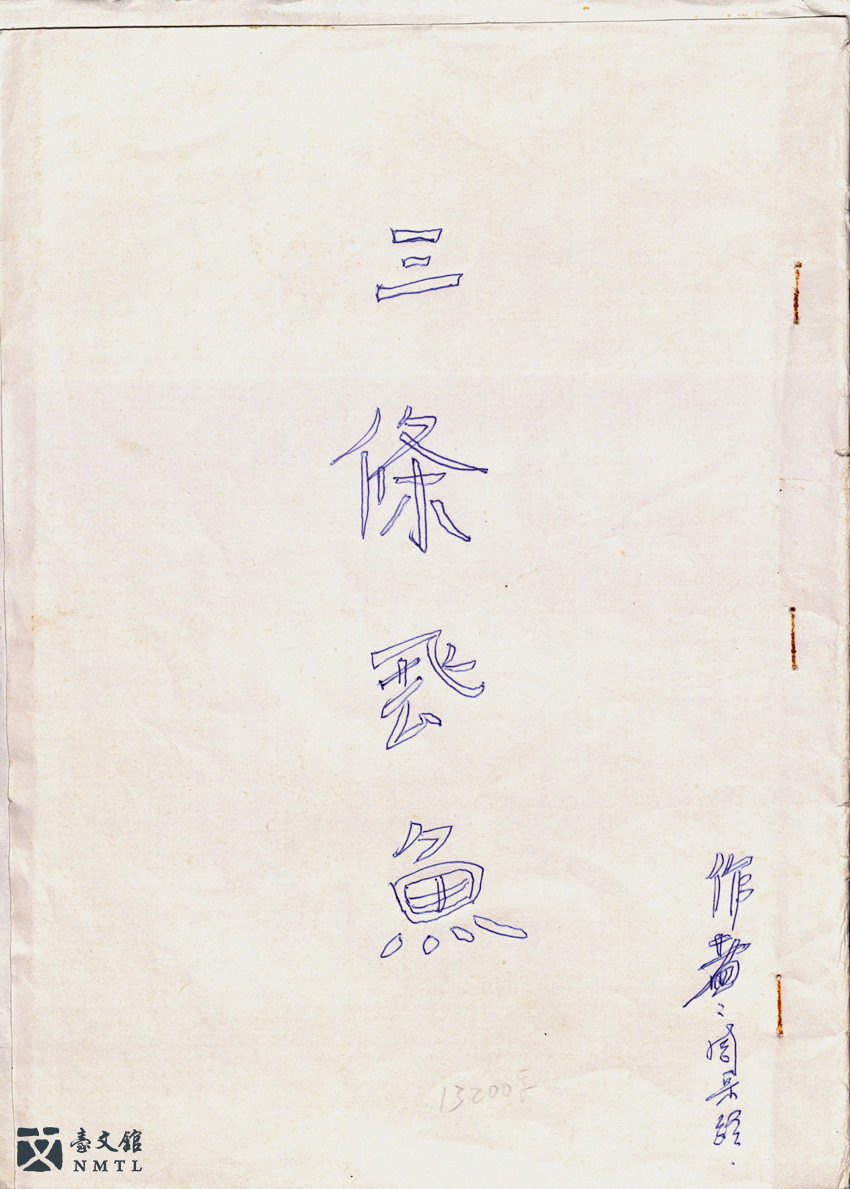 三條飛魚
作者：周宗經.
13200字
臺文館
NMTL